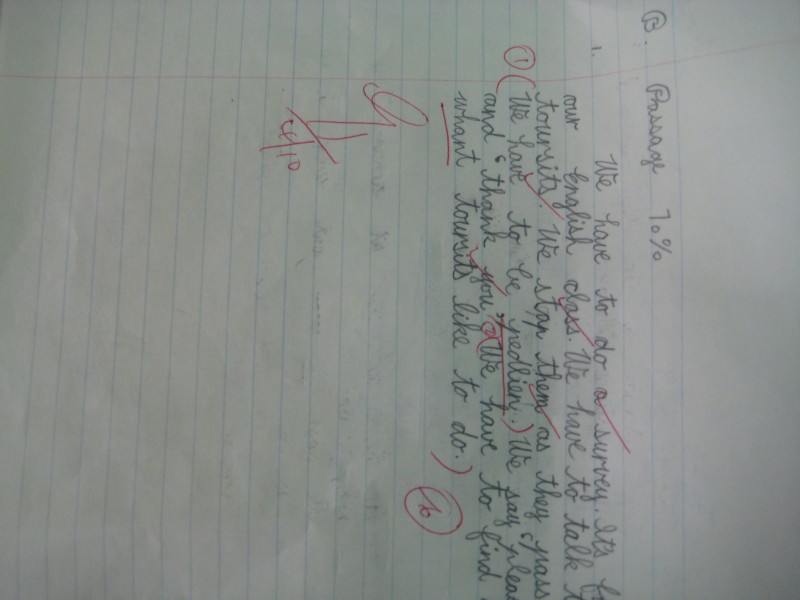 B. Passage 70%
1. We have to do a survey. It's
our English class. We have to talk
toursits. We stop them as they pass
① (We have to be pedlien.) We say 'pleas
and 'thank you'. (We have to find
whant toursits like to do.)
16
4/10